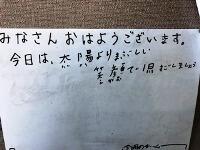 みなさんおはようございます。
今日は、太陽よりまぶしい
笑顔で1日すごしましょう